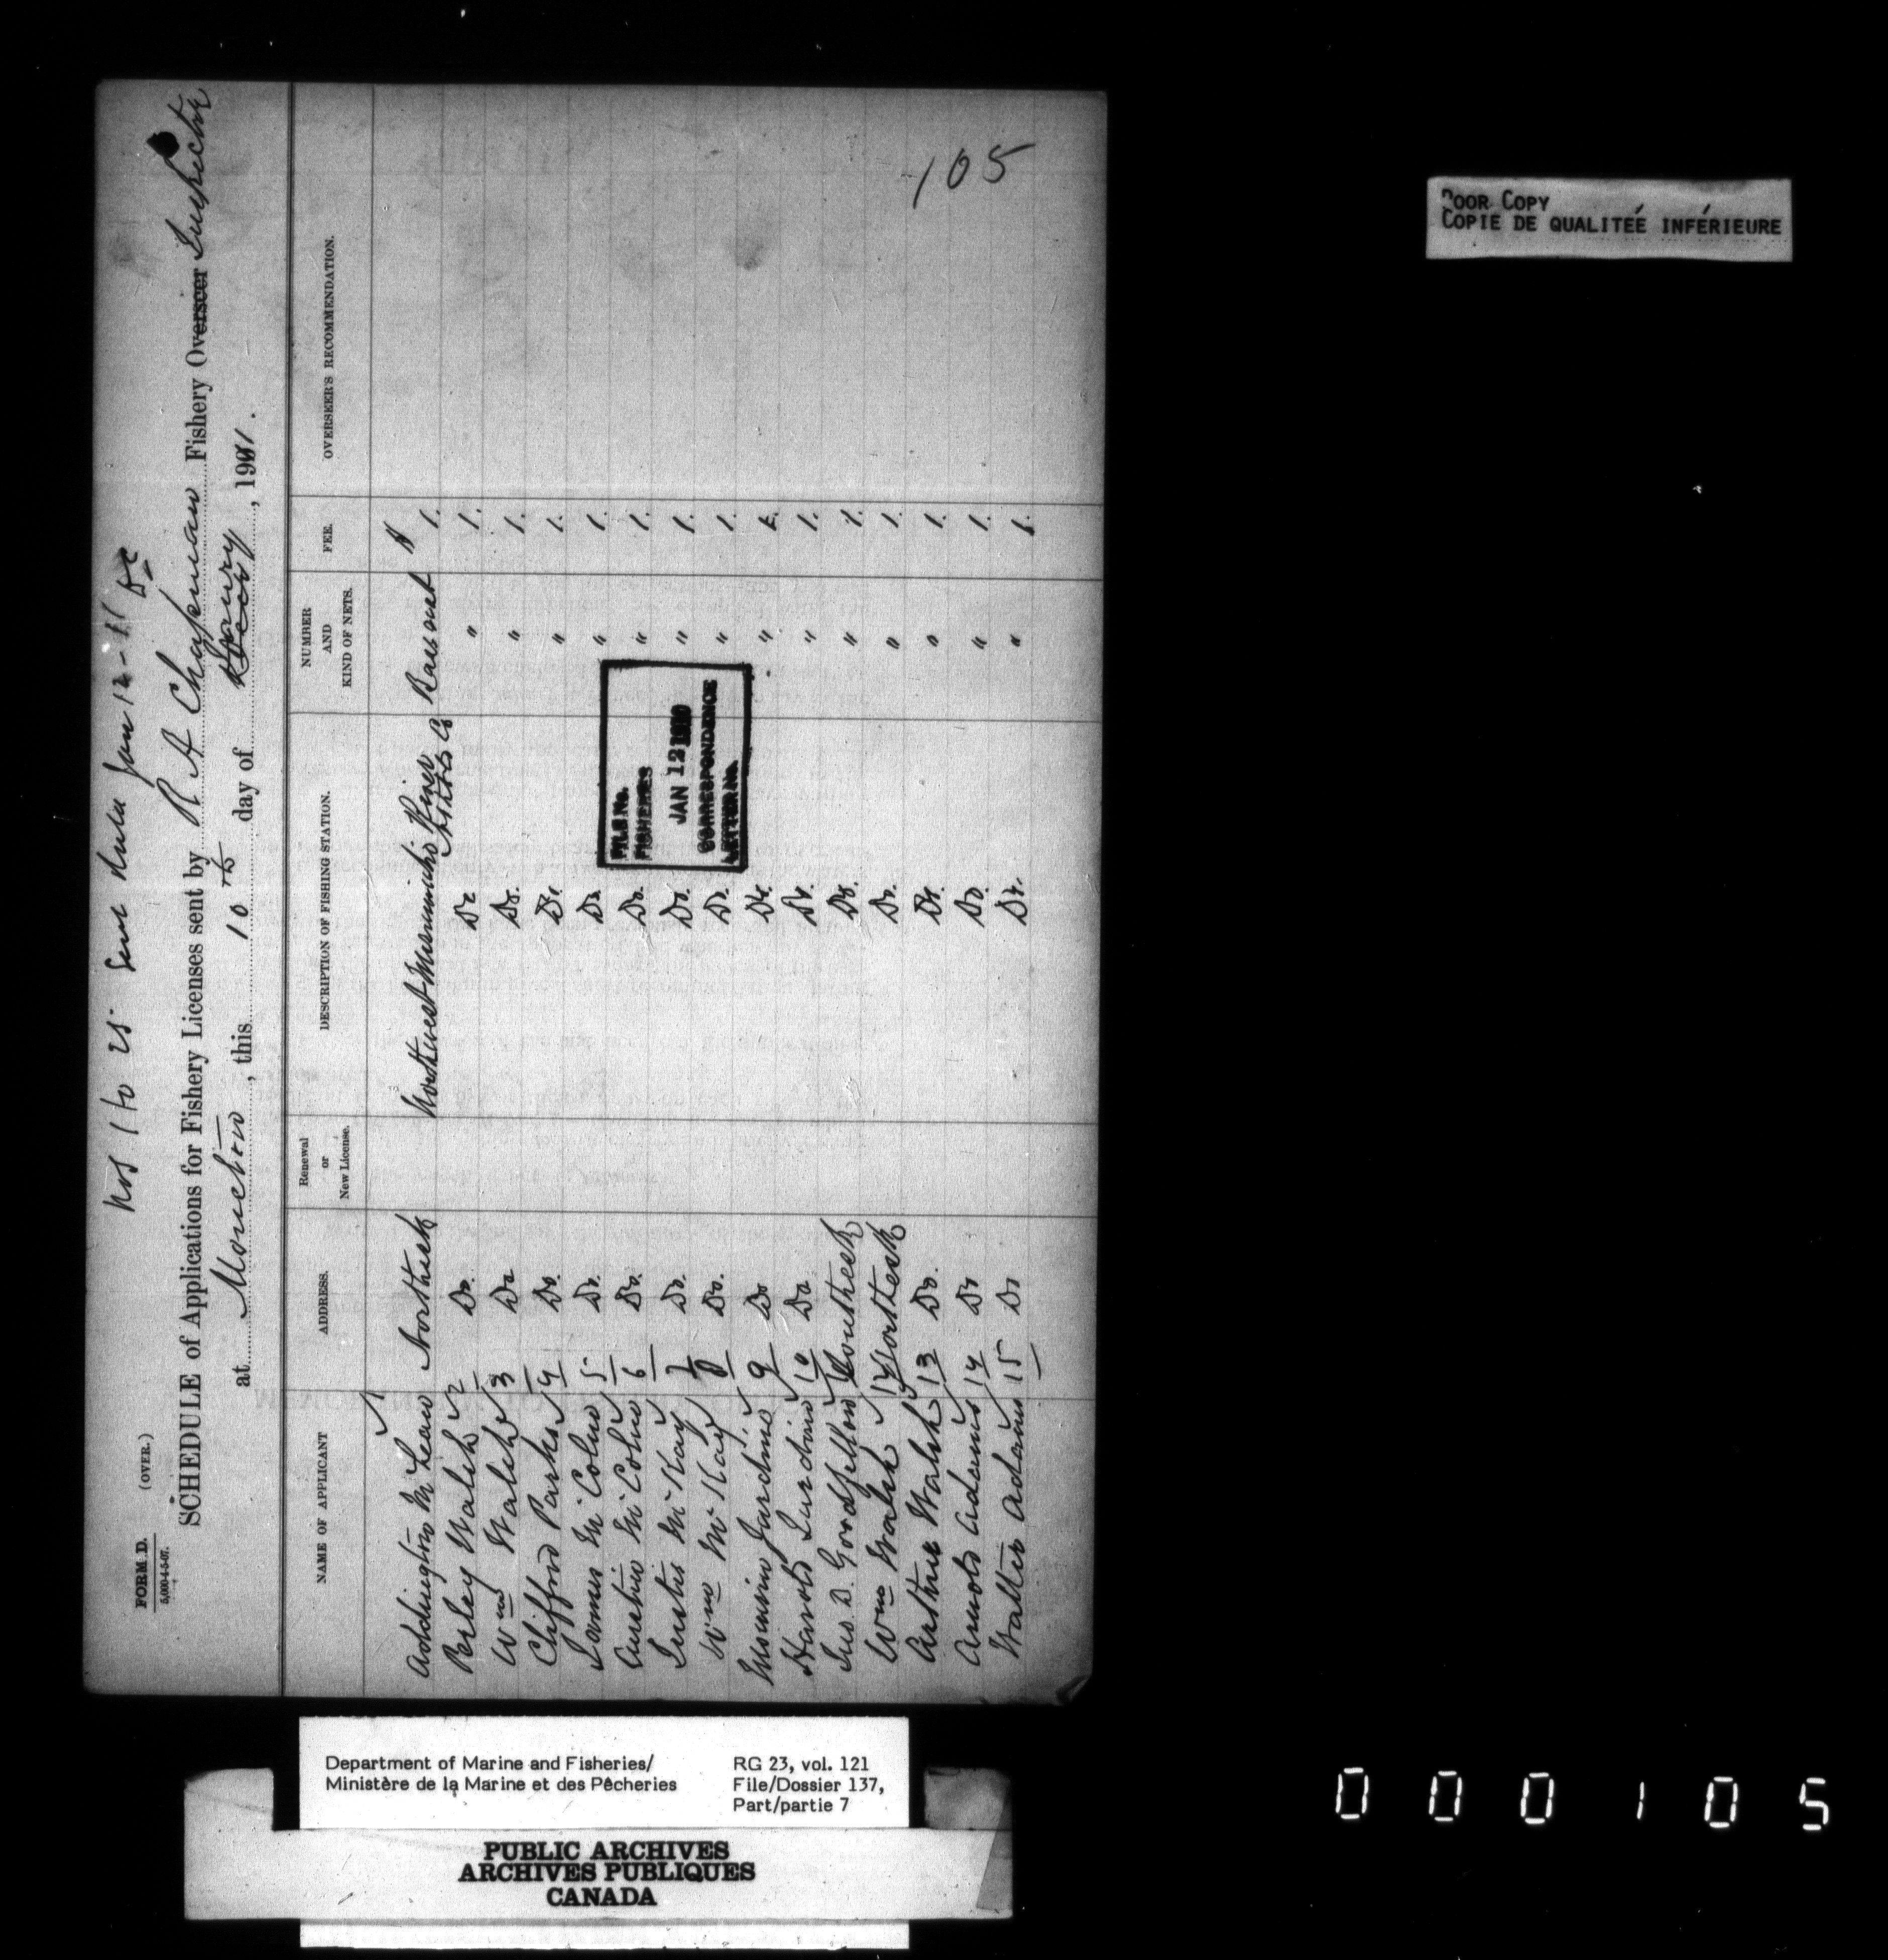 Nos 1 to 25 Sent Jan 12-11
FORM D. (OVER.)
5,000-4-5-07.
SCHEDULE of Applications for Fishery Licenses sent by R A Chapman Fishery Overseer Inspector
at Moncton, this 10th day of Decr Jany, 1911.
NAME OF APPLICANT ADDRESS. Renewal or New License. DESCRIPTION OF FISHING STATION. NUMBER AND KIND OF NETS. FEE. OVERSEER'S RECOMMENDATION.
Addington McLean 1 Northesk Northwest Miramichi River North'd Co Bass net $ 1.
Perley Walsh 2 Do. Do " 1.
Wm Walsh 3 Do Do. " 1.
Clifford Parks 4 Do. Do. " 1.
James McColm 5 Do. Do. " 1.
Austin McColm 6 Do. Do. " 1.
McKay 7 Do. Do. " 1.
Wm McKay 8 Do. Do. " 1.
Jardine 9 Do Do. " 1.
Harold Jardine 10 Do Do. " 1.
Jno. D. Goodfellow 11 Southesk Do. " 1.
Wm Walsh 12 Northesk Do. " 1.
Arthur Walsh 13 Do. Do. " 1.
Arnold Adams 14 Do Do. " 1.
Walter Adams 15 Do Do. " 1.
FILE No.
FISHERIES
JAN 12 1910
CORRESPONDENCE
LETTER No.
105
POOR COPY
COPIE DE QUALITEÉ INFÉRIEURE
Department of Marine and Fisheries/
Ministère de la Marine et des Pêcheries
RG 23, vol. 121
File/Dossier 137,
Part/partie 7
PUBLIC ARCHIVES
ARCHIVES PUBLIQUES
CANADA
000105